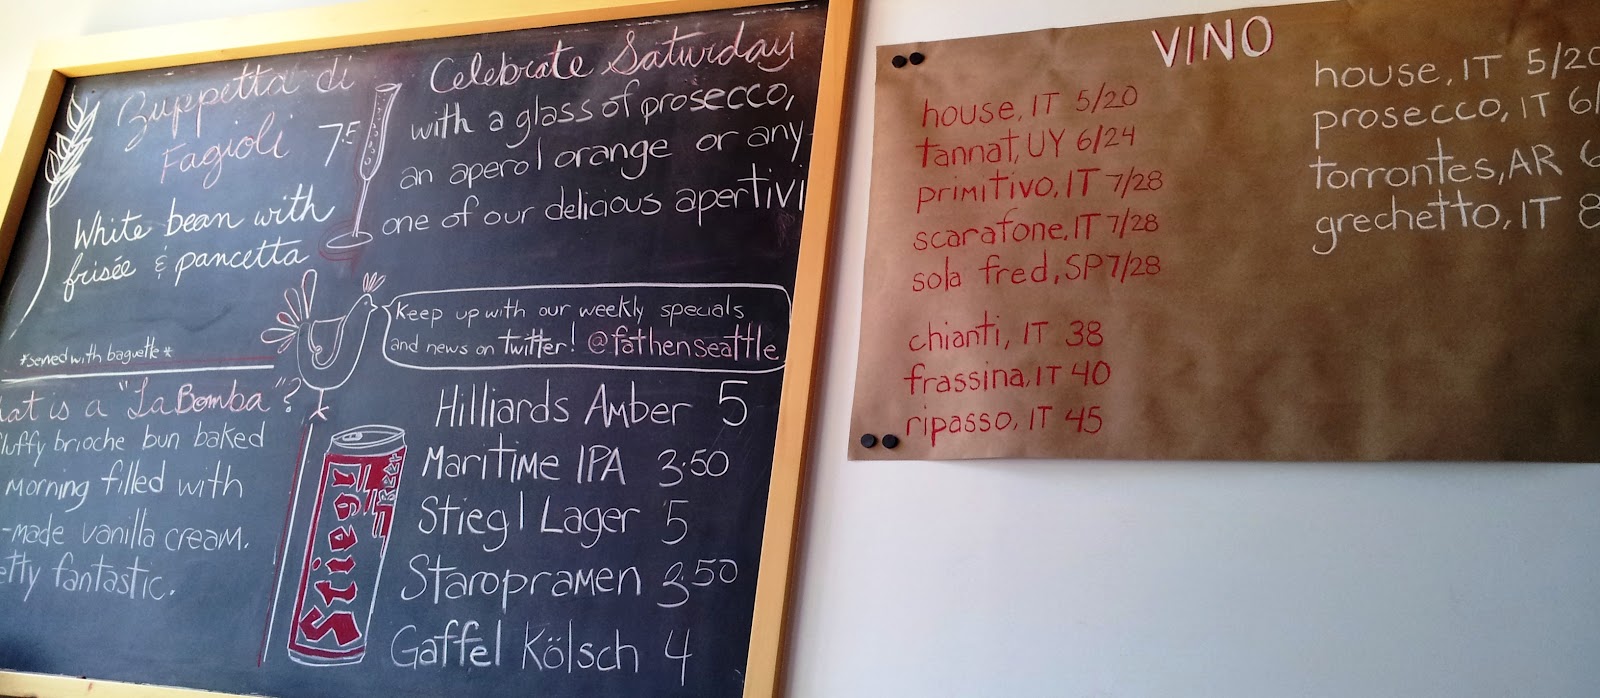 Zuppetta di
Fagioli 7.5
White bean with
frisée & pancetta
*served with baguette*
at is a "La Bomba"?
luffy brioche bun baked
morning filled with
-made vanilla cream.
etty fantastic.
Celebrate Saturday
with a glass of prosecco,
an aperol orange or any
one of our delicious apertivi
Keep up with our weekly specials
and news on twitter! @fathenseattle
Hilliards Amber 5
Maritime IPA 3.50
Stiegl Lager 5
Staropramen 3.50
Gaffel Kölsch 4
Stiegl
VINO
house, IT 5/20
tannat, UY 6/24
primitivo, IT 7/28
scarafone, IT 7/28
sola fred, SP 7/28
chianti, IT 38
frassina, IT 40
ripasso, IT 45
house, IT 5/20
prosecco, IT 6/
torrontes, AR 6
grechetto, IT 8